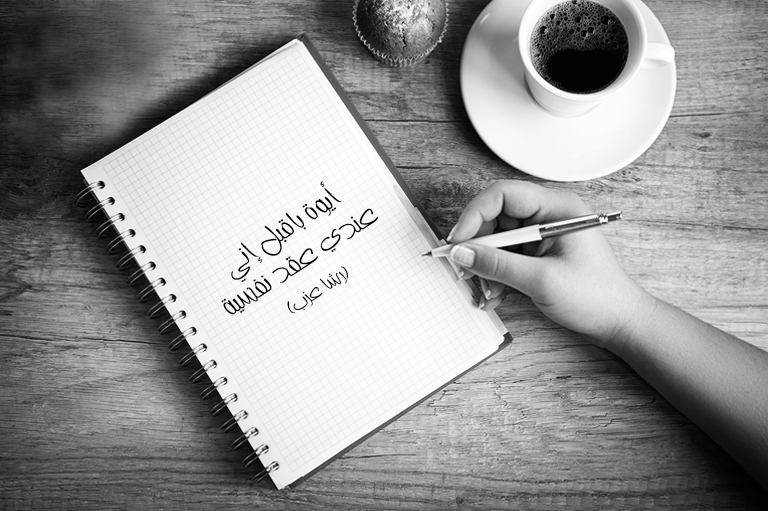 أيوة باقبل إني
عندي عقد نفسية
(رشا عزب)